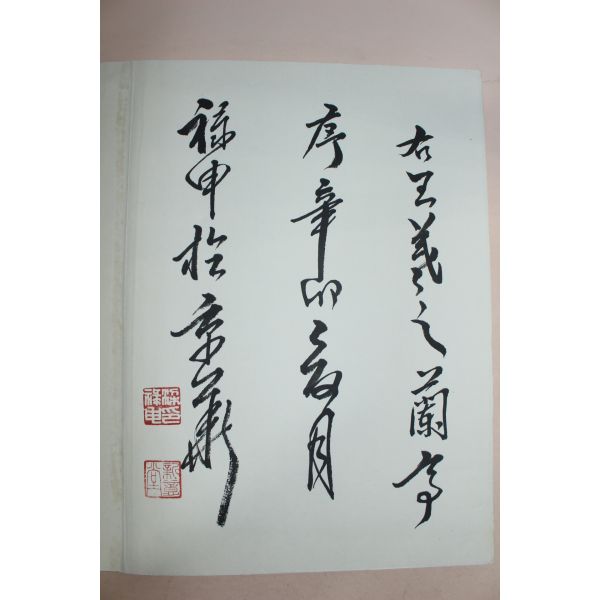 右王羲之蘭亭
序辛卯夏月
祿申於京華